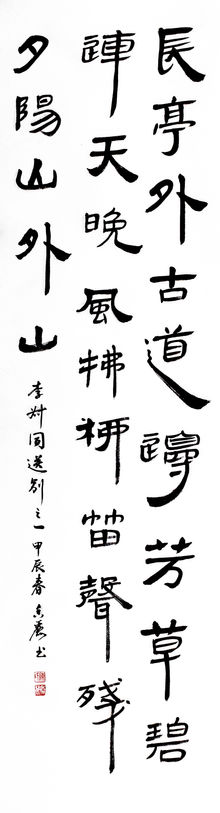 長亭外古道邊芳草碧
連天晚風拂柳笛聲殘
夕陽山外山
李叔同送別之一甲辰春書